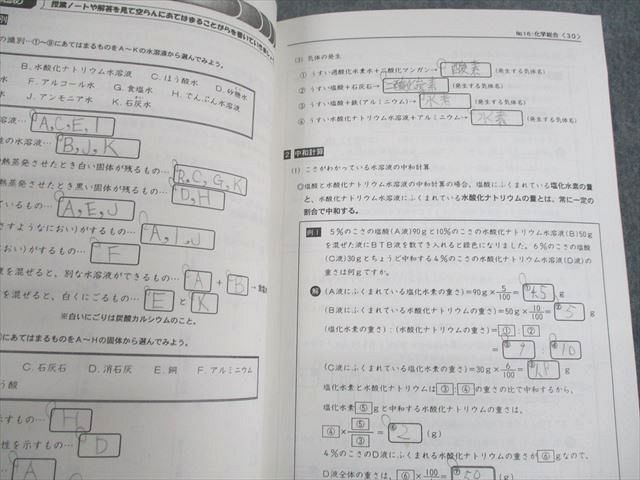 授業ノートや解答を見て空らんにあてはまることがらを書いて
の識別…①~⑨にあてはまるものをA~Kの水溶液から選んでみよう。
B.水酸化ナトリウム水溶液 C.ほう酸水 D.砂糖水
F.アルコール水 G.食塩水 H.でんぷん水溶液
J.アンモニア水 K.石灰水
溶液… A,C,E,I
性の水溶液… B,J,K
熱蒸発させたとき白い固体が残るもの… B,C,G,K
熱蒸発させたとき黒い固体が残るもの… D,H
ているもの… A,E,J
さすようなにおい)がするもの… A,I,J
におい)がするもの… F
液を混ぜると、別な水溶液ができるもの… A + B →
を混ぜると、白くにごるもの… E と K
※白いにごりは炭酸カルシウムのこと。
にあてはまるものをA~Hの固体から選んでみよう。
C.石灰石 D.消石灰 E.銅 F.アルミニウム
う酸
示すもの… H
性を示すもの… D
A
№16:化学総合〈30〉
(3) 気体の発生
① うすい過酸化水素水+二酸化マンガン→ 酸素 (発生する気体名)
② うすい塩酸+石灰石→ 二酸化炭素 (発生する気体名)
③ うすい塩酸+鉄(アルミニウム)→ 水素 (発生する気体名)
④ うすい水酸化ナトリウム水溶液+アルミニウム→ 水素 (発生する気体名)
2 中和計算
(1) こさがわかっている水溶液の中和計算
◎塩酸と水酸化ナトリウム水溶液の中和計算の場合、塩酸にふくまれている塩化水素の量
と、水酸化ナトリウム水溶液にふくまれている水酸化ナトリウムの量とは、常に一定の
割合で中和する。
例1 5%のこさの塩酸(A液)90gと10%のこさの水酸化ナトリウム水溶液(B液)50g
を混ぜた液にBTB液を数てき入れると緑色になりました。6%のこさの塩酸
(C液)30gとちょうど中和する4%のこさの水酸化ナトリウム水溶液(D液)の
重さは何gですか。
解 (A液にふくまれている塩化水素の重さ)=90g×5/100= ①4.5 g
(B液にふくまれている水酸化ナトリウムの重さ)=50g×10/100= ②5 g
(塩化水素の重さ):(水酸化ナトリウムの重さ)= ① : ②
= ③9 : ④10
(C液にふくまれている塩化水素の重さ)=30g×6/100= ⑤1.8 g
塩化水素と水酸化ナトリウムは ③ : ④ の重さの比で中和するから、
塩化水素 ⑤ gと中和する水酸化ナトリウムの重さは、
④ × ⑤/③ = ⑥2 (g)
4%のこさのD液にふくまれる水酸化ナトリウムの重さが ⑥ gなので、
D液全体の重さは、 ⑥ ×100 = ⑦50 (g)